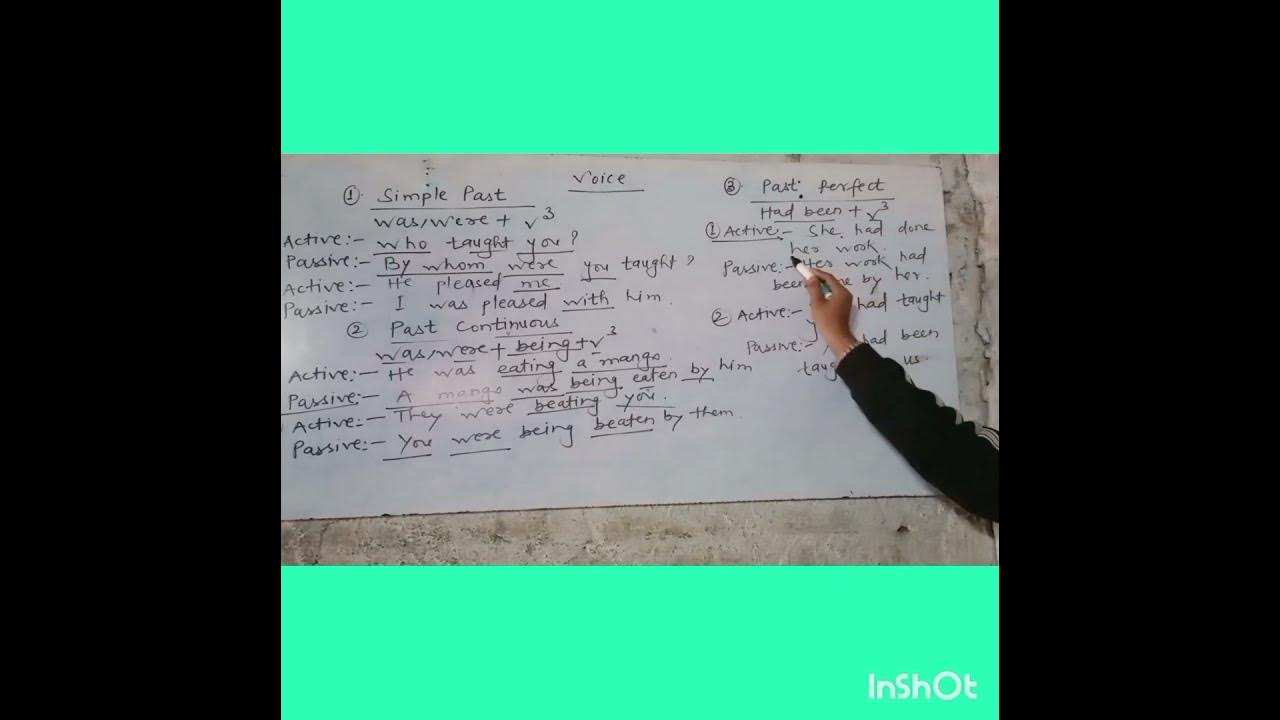 Voice
① Simple Past
was/were + v³
Active:- who taught you?
Passive:- By whom were you taught?
Active:- He pleased me
Passive:- I was pleased with him.
② Past Continuous
was/were + being + v³
Active:- He was eating a mango.
Passive:- A mango was being eaten by him
Active:- They were beating you.
Passive:- You were being beaten by them.
③ Past Perfect
Had been + v³
① Active:- She had done
her work.
Passive:- Her work had
by her.
② Active:- had taught
Passive:- had been
us.
InShOt